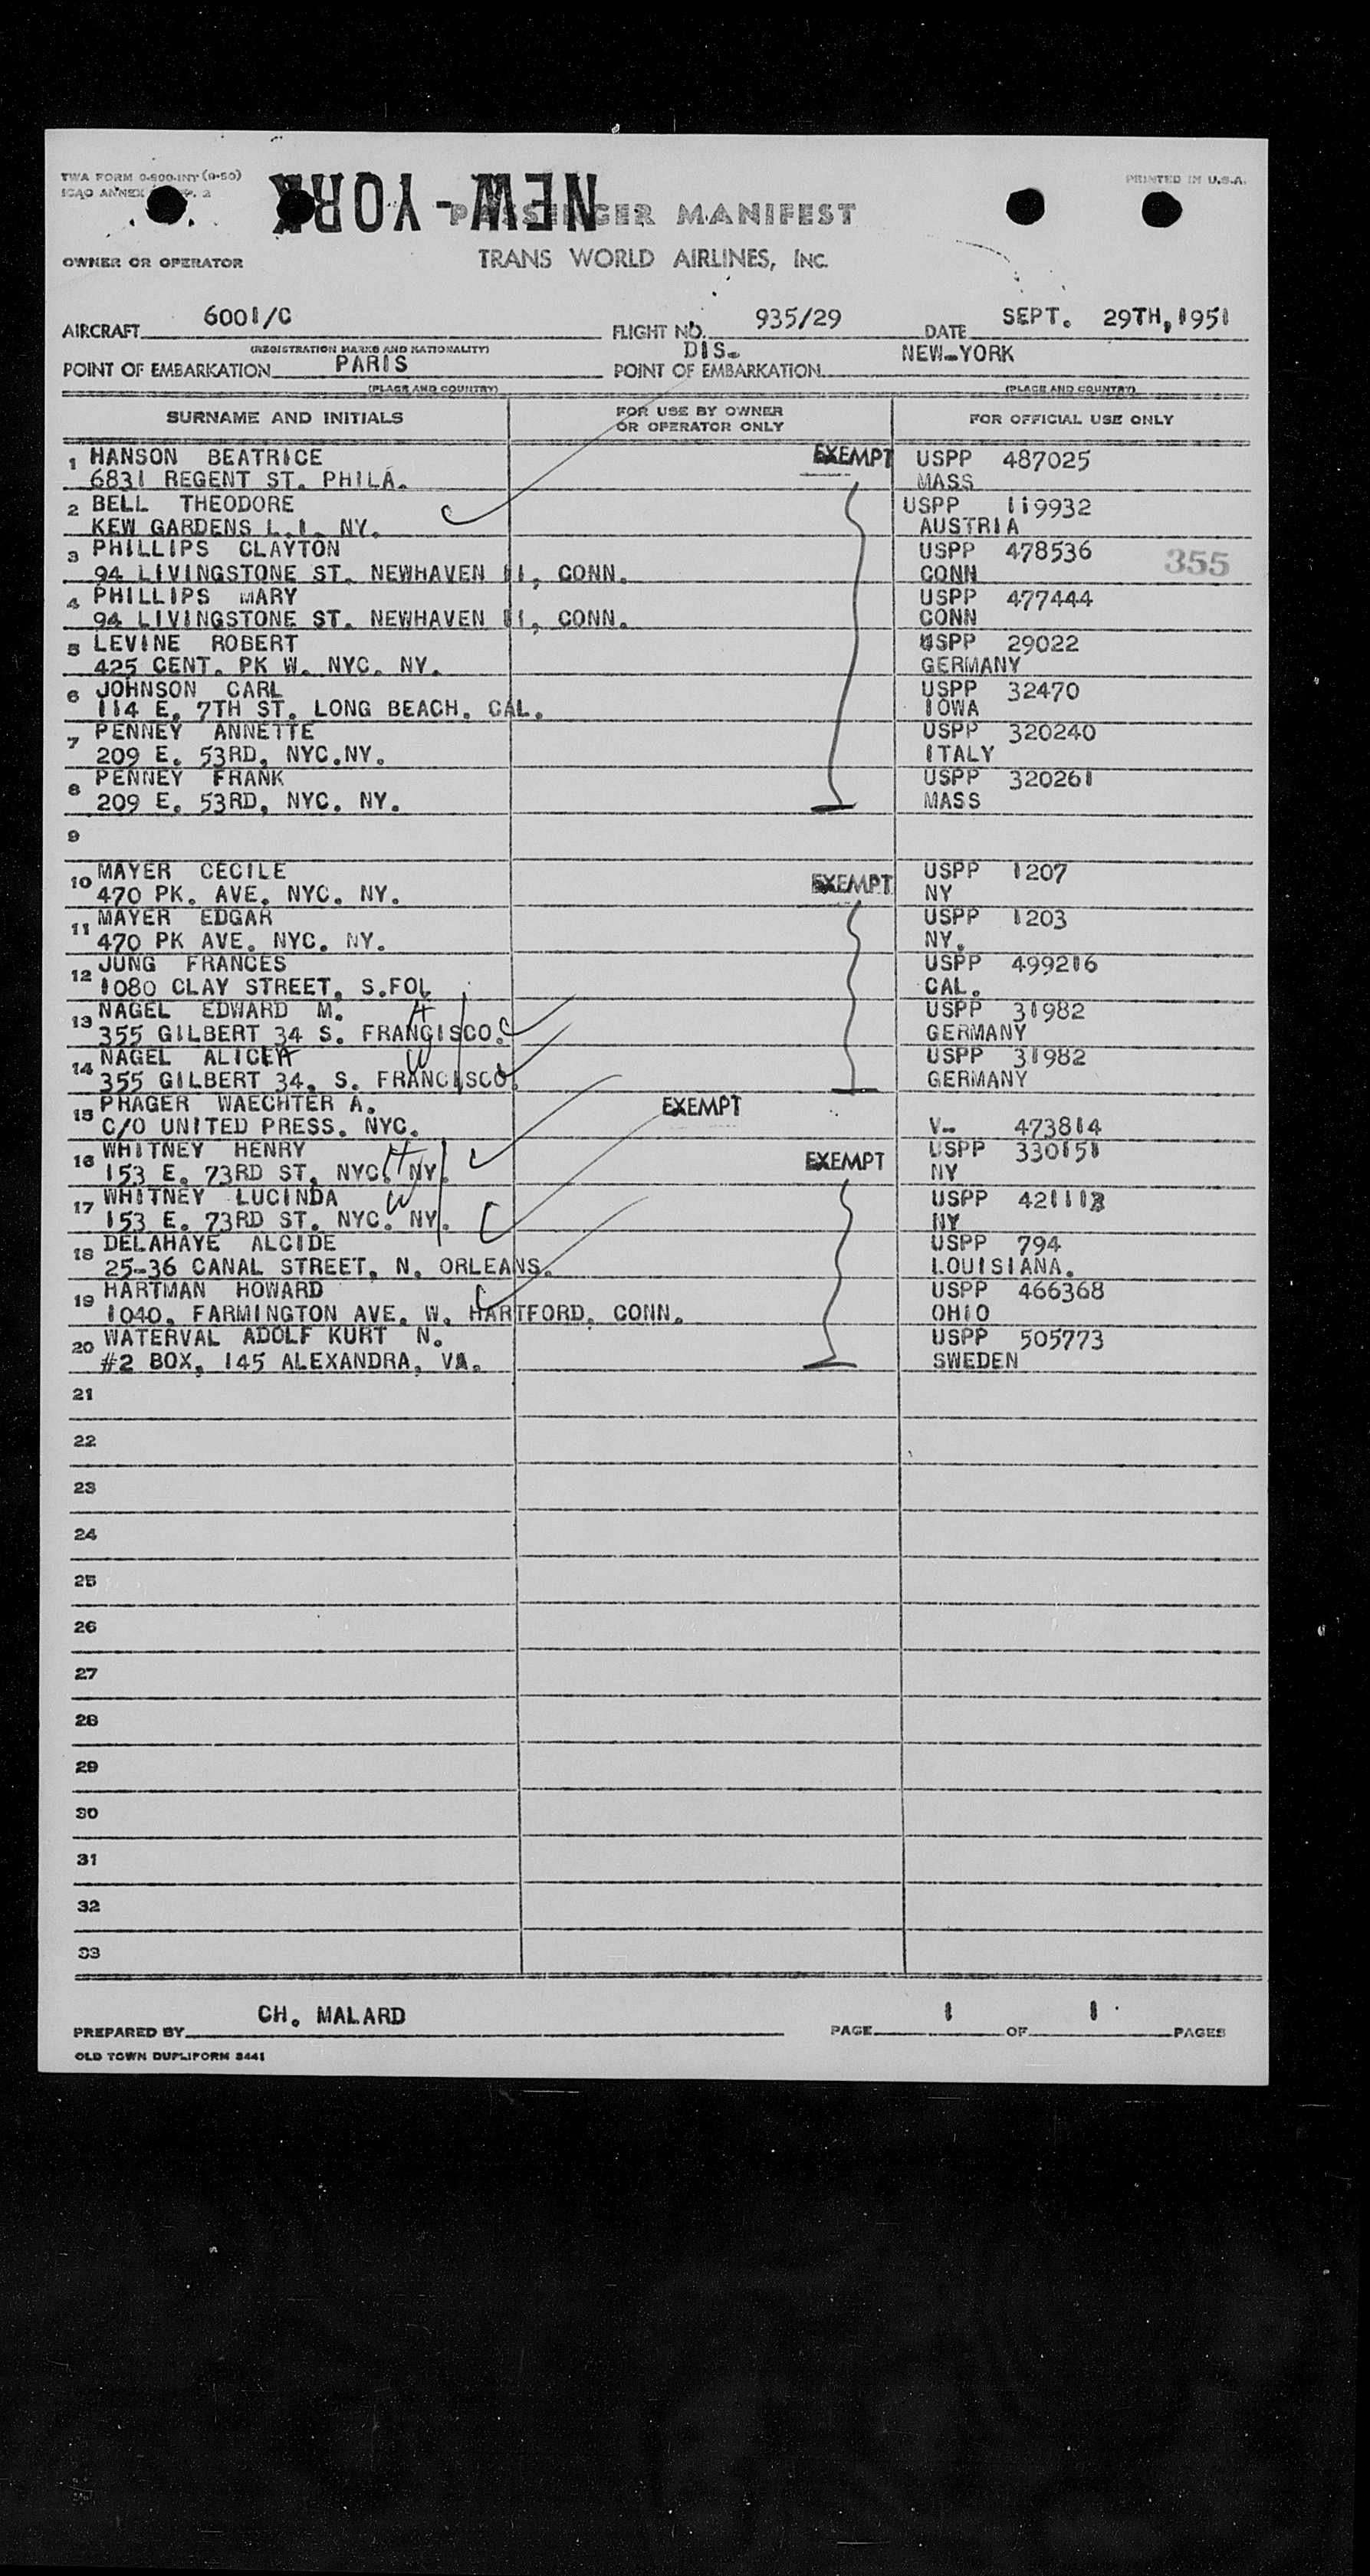 TWA FORM 0-900-INT (9-50)
PRINTED IN U.S.A.
NEW-YORK
PASSENGER MANIFEST
OWNER OR OPERATOR
TRANS WORLD AIRLINES, INC.
AIRCRAFT 6001/C FLIGHT NO. 935/29 DATE SEPT. 29TH, 1951
(REGISTRATION MARKS AND NATIONALITY)
POINT OF EMBARKATION PARIS DIS. POINT OF EMBARKATION NEW-YORK
(PLACE AND COUNTRY) (PLACE AND COUNTRY)
SURNAME AND INITIALS FOR USE BY OWNER OR OPERATOR ONLY FOR OFFICIAL USE ONLY
1 HANSON BEATRICE EXEMPT USPP 487025
6831 REGENT ST. PHILA. MASS
2 BELL THEODORE USPP 119932
KEW GARDENS L.I. NY. AUSTRIA
3 PHILLIPS CLAYTON USPP 478536 355
94 LIVINGSTONE ST. NEWHAVEN 11, CONN. CONN
4 PHILLIPS MARY USPP 477444
94 LIVINGSTONE ST. NEWHAVEN 11, CONN. CONN
5 LEVINE ROBERT USPP 29022
425 CENT. PK W. NYC. NY. GERMANY
6 JOHNSON CARL USPP 32470
114 E. 7TH ST. LONG BEACH. CAL. IOWA
7 PENNEY ANNETTE USPP 320240
209 E. 53RD, NYC.NY. ITALY
8 PENNEY FRANK USPP 320261
209 E. 53RD, NYC. NY. MASS
9
10 MAYER CECILE EXEMPT USPP 1207
470 PK. AVE. NYC. NY. NY
11 MAYER EDGAR USPP 1203
470 PK AVE. NYC. NY. NY.
12 JUNG FRANCES USPP 499216
1080 CLAY STREET, S.FOL CAL.
13 NAGEL EDWARD M. H USPP 31982
355 GILBERT 34 S. FRANCISCO. GERMANY
14 NAGEL ALICE W USPP 31982
355 GILBERT 34, S. FRANCISCO. GERMANY
15 PRAGER WAECHTER A. EXEMPT
C/O UNITED PRESS. NYC. V- 473814
16 WHITNEY HENRY H EXEMPT USPP 330151
153 E. 73RD ST. NYC. NY. NY
17 WHITNEY LUCINDA W USPP 421113
153 E. 73RD ST. NYC. NY. NY
18 DELAHAYE ALCIDE USPP 794
25-36 CANAL STREET, N. ORLEANS. LOUISIANA.
19 HARTMAN HOWARD USPP 466368
1040, FARMINGTON AVE. W. HARTFORD. CONN. OHIO
20 WATERVAL ADOLF KURT N. USPP 505773
#2 BOX, 145 ALEXANDRA, VA. SWEDEN
21
22
23
24
25
26
27
28
29
30
31
32
33
PREPARED BY CH. MALARD PAGE 1 OF 1 PAGES
OLD TOWN DUPLIFORM 3441